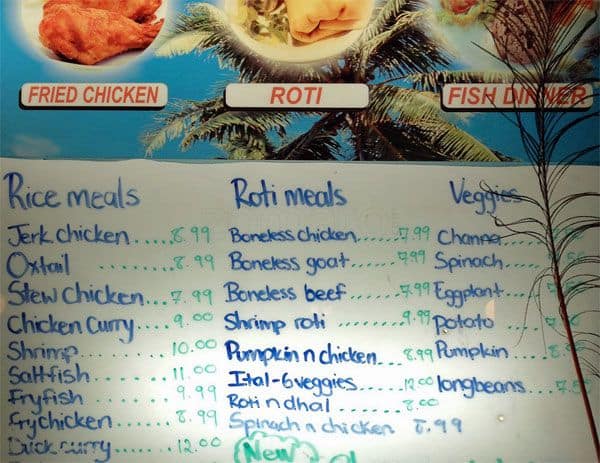 FRIED CHICKEN
ROTI
FISH DINNER
Rice meals
Jerk chicken.....8.99
Oxtail .......8.99
Stew Chicken...7.99
Chicken Curry....9.00
Shrimp........10.00
Saltfish......11.00
Fryfish......9.99
Frychicken......8.99
Duck curry.....12.00
Roti meals
Boneless chicken......7.99
Boneless goat......7.99
Boneless beef......7.99
Shrimp roti ........9.99
Pumpkin n chicken...8.99
Ital-6veggies.....12.00
Roti n dhal .....8.00
Spinach n chicken 8.99
New
Veggies
Channa
Spinach
Eggplant
Potato
Pumpkin
longbeans